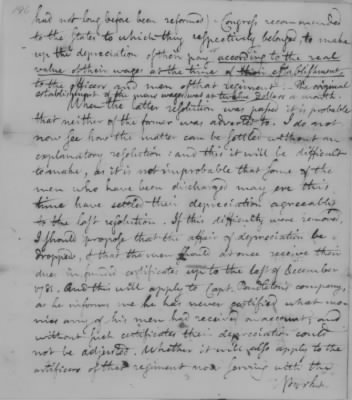 had not long before been reformed) Congress recommended
to the States to which they respectively belonged, to make
up the depreciation of their pay according to the real
value of their wages at the time of their establishment
to the officers and men of that regiment. The original
establishment of the mens wages was at twelve dollars a month.
When the latter resolution was passed it is probable
that neither of the former was adverted to. I do not
now see how the matter can be settled without an
explanatory resolution: and this it will be difficult
to make, as it is not improbable that some of the
men who have been discharged may ere this
time have settled their depreciation agreeably
to the last resolution. If this difficulty were removed,
I should propose that the affair of depreciation be
dropped, & that the men should at once receive their
dues in final certificates up to the last of December
1781. And this will apply to Capt. Pendleton's company,
as he informs me he has never certified what mo-
nies any of his men had received on account; and
without such certificates their depreciation could
not be adjusted. Whether it will also apply to the
artificers of that regiment now serving with the